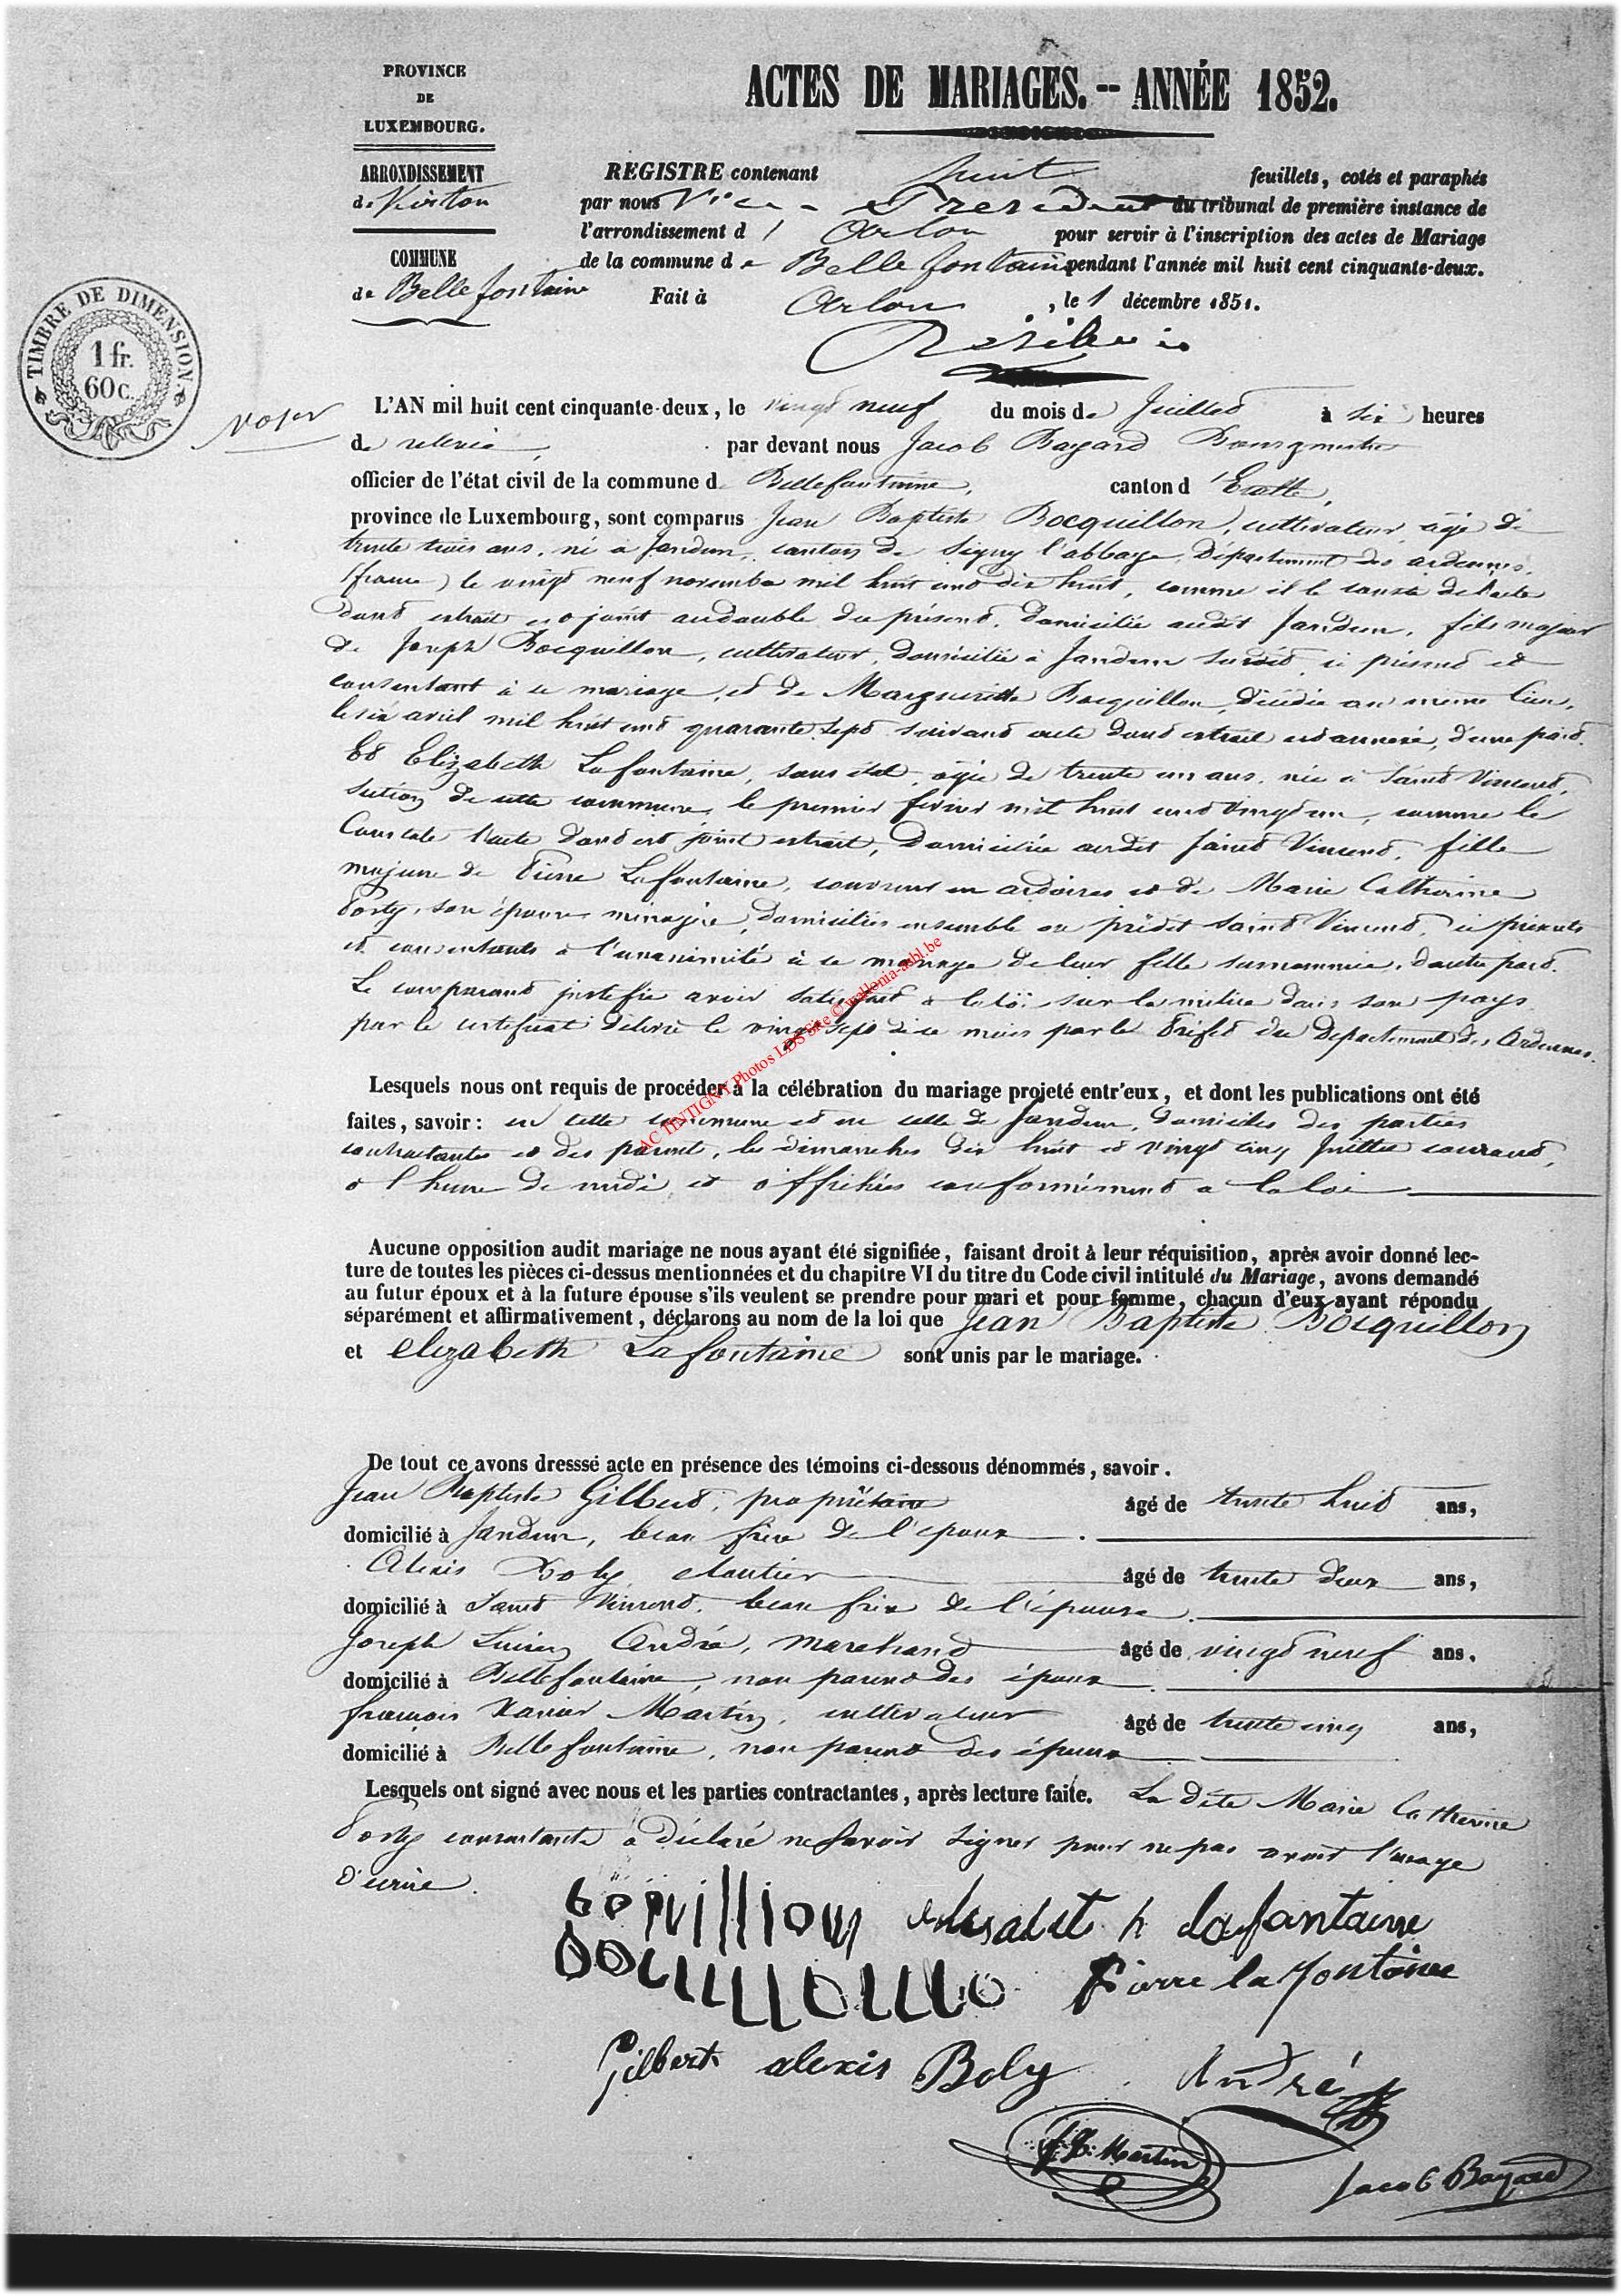 PROVINCE
DE
LUXEMBOURG.
ARRONDISSEMENT
de Virton
COMMUNE
de Bellefontaine
TIMBRE DE DIMENSION.
1 fr.
60 c.
ACTES DE MARIAGES. -- ANNÉE 1852.
REGISTRE contenant huit feuillets, cotés et paraphés
par nous Vice-Président du tribunal de première instance de
l'arrondissement d'Arlon pour servir à l'inscription des actes de Mariage
de la commune de Bellefontaine pendant l'année mil huit cent cinquante-deux.
Fait à Arlon, le 1 décembre 1851.
L'AN mil huit cent cinquante-deux, le vingt neuf du mois de Juillet à six heures
de relevée, par devant nous Jacob Bayard Bourgmestre
officier de l'état civil de la commune de Bellefontaine, canton d'Etalle,
province de Luxembourg, sont comparus Jean Baptiste Bocquillon, cultivateur, âgé de
trente trois ans, né à Jandun, canton de Signy l'abbaye, Département des ardennes,
(france) le vingt neuf novembre mil huit cent dix huit, comme il le conste de l'acte
dont extrait est joint au double du présent, domicilié audit Jandun, fils majeur
de Joseph Bocquillon, cultivateur, domicilié à Jandun susdit, ici présent et
consentant à ce mariage, et de Margueritte Bocquillon, décédée au même lieu,
le six avril mil huit cent quarante sept suivant acte dont extrait est annexé, d'une part.
Et Elizabeth Lafontaine, sans état, âgée de trente un ans, née à Saint Vincent,
section de cette commune, le premier février mil huit cent vingt un, comme le
Constate l'acte dont est joint extrait, domiciliée audit Saint Vincent, fille
majeure de Pierre Lafontaine, couvreur en ardoires et de Marie Catherine
son épouse ménagère, domiciliés ensemble au prédit Saint Vincent, ici présents
et consentants à l'unanimité à ce mariage de leur fille surnommée, d'autre part.
Le comparant justifie avoir satisfait à la loi sur la milice dans son pays
par le certificat délivré le vingt sept de ce mois par le Préfet du Département des Ardennes.
AC TINTIGNY Photos LDS Site © wallonia-asbl.be
Lesquels nous ont requis de procéder à la célébration du mariage projeté entr'eux, et dont les publications ont été
faites, savoir: en cette commune et en celle de Jandun, domiciles des parties
contractantes et des parents, les dimanches dix huit et vingt cinq Juillet courant,
à l'heure de midi et affichées conformément à la loi
Aucune opposition audit mariage ne nous ayant été signifiée, faisant droit à leur réquisition, après avoir donné lec-
ture de toutes les pièces ci-dessus mentionnées et du chapitre VI du titre du Code civil intitulé du Mariage, avons demandé
au futur époux et à la future épouse s'ils veulent se prendre pour mari et pour femme, chacun d'eux ayant répondu
séparément et affirmativement, déclarons au nom de la loi que Jean Baptiste Bocquillon
et elizabeth Lafontaine sont unis par le mariage.
De tout ce avons dresssé acte en présence des témoins ci-dessous dénommés, savoir.
Jean Baptiste Gilbert, propriétaire âgé de trente huit ans,
domicilié à Jandun, beau frère de l'époux.
Alexis Boly, cloutier âgé de trente deux ans,
domicilié à Saint Vincent, beau frère de l'épouse.
Joseph Lucien André, marchand âgé de vingt neuf ans,
domicilié à Bellefontaine, non parent des époux.
françois Xavier Martin, cultivateur âgé de trente cinq ans,
domicilié à Bellefontaine, non parent des époux
Lesquels ont signé avec nous et les parties contractantes, après lecture faite. La dite Marie Catherine
consentante a déclaré ne savoir signer pour ne pas avoir l'usage
d'écrire.
elisabet h lafontaine
Pierre lafontaine
Gilbert alexis Boly André
f. X. Martin
Jacob Bayard